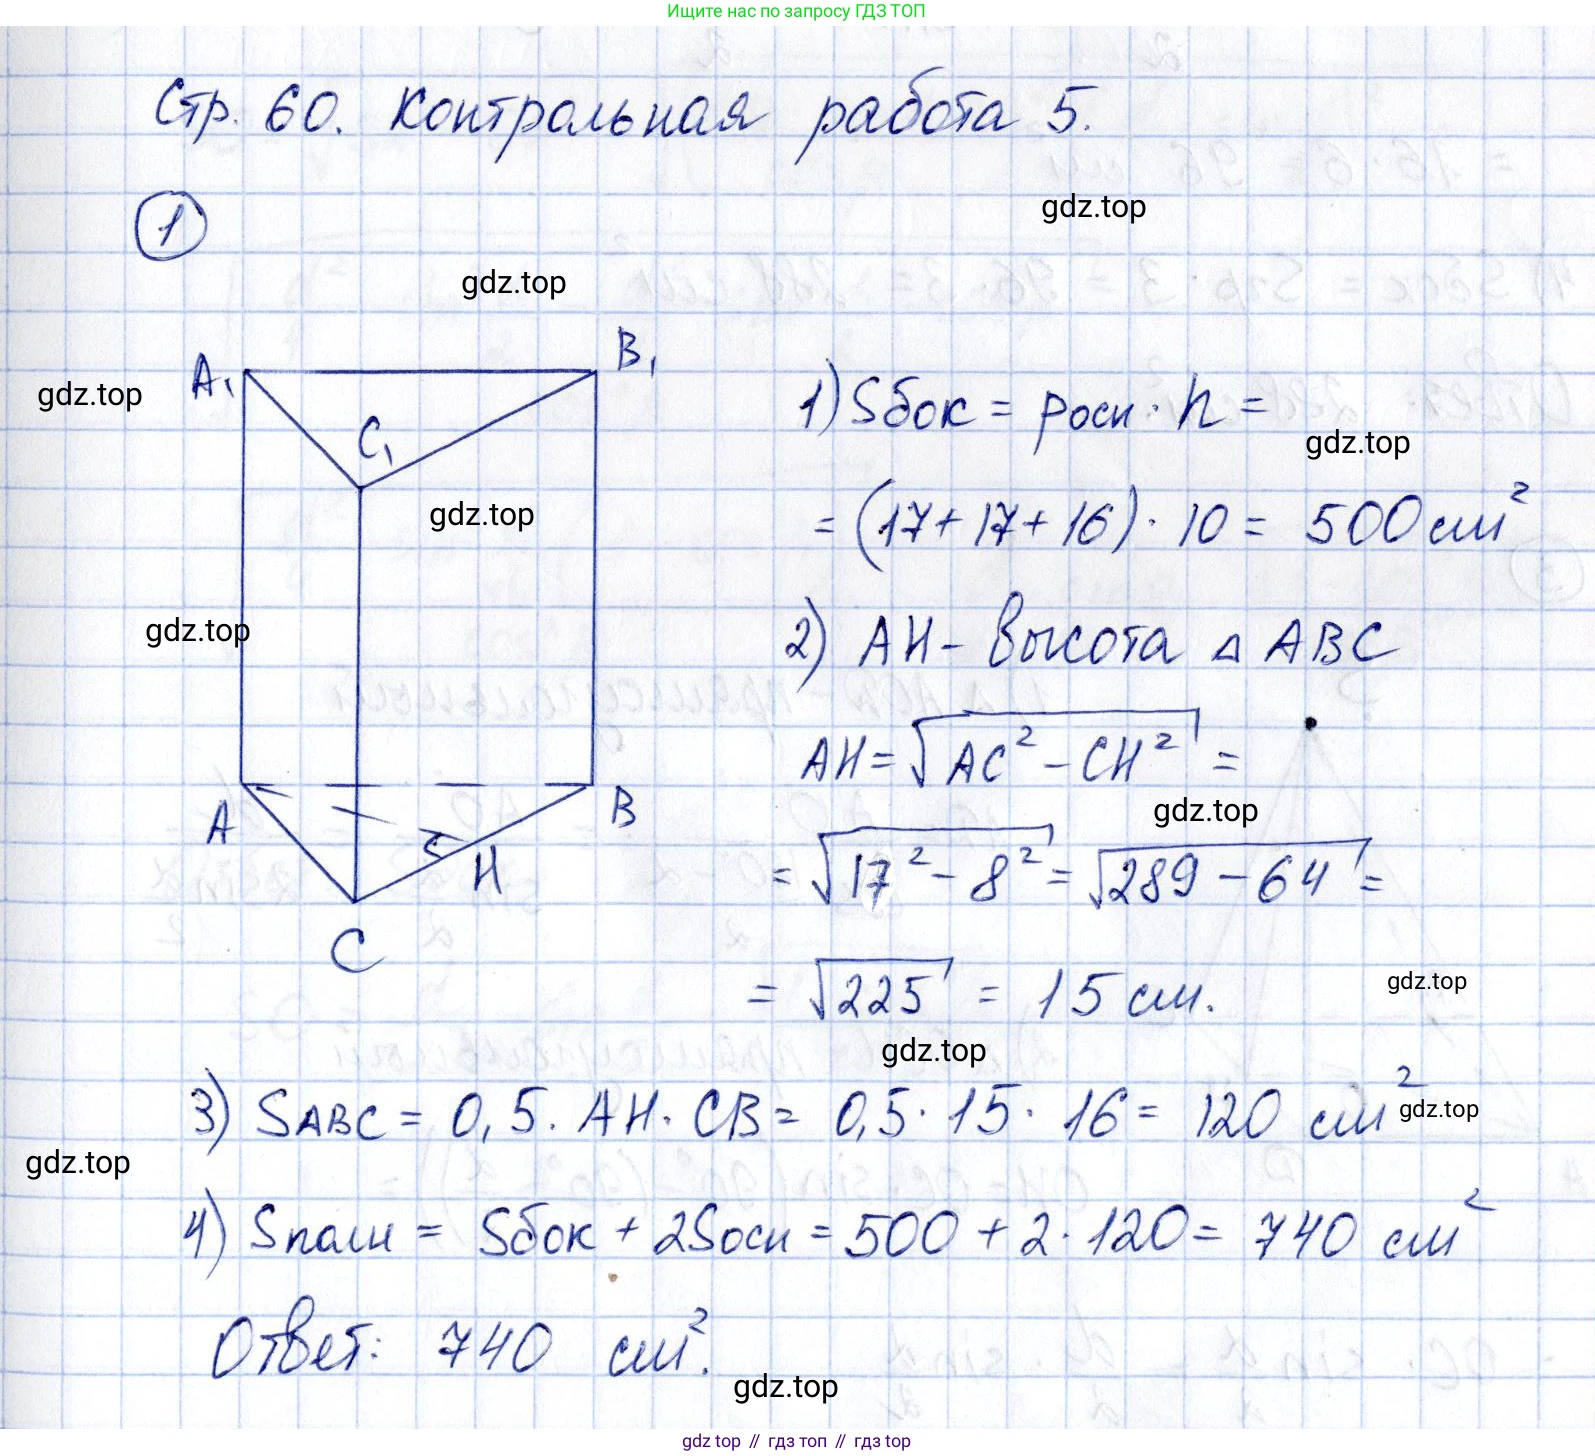 Ищите нас по запросу ГДЗ ТОП
Стр. 60. Контрольная работа 5.
1
gdz.top
gdz.top
A₁
B₁
C₁
gdz.top
gdz.top
gdz.top
A
B
H
C
1) Sбок = pосн · h =
gdz.top
= (17+17+16) · 10 = 500 см²
2) AH - высота △ ABC
AH = √AC² - CH² =
gdz.top
= √17² - 8² = √289 - 64 =
= √225 = 15 см.
gdz.top
gdz.top
3) SABC = 0,5 · AH · CB = 0,5 · 15 · 16 = 120 см²
gdz.top
gdz.top
4) Sполн = Sбок + 2Sосн = 500 + 2 · 120 = 740 см²
Ответ: 740 см².
gdz.top
gdz top // гдз топ // gdz top